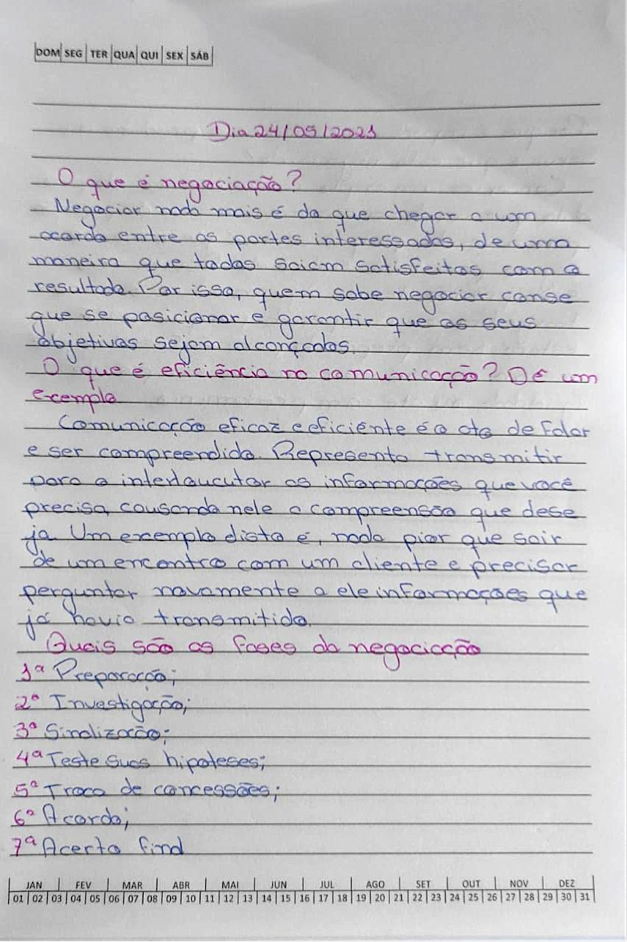 DOM SEG TER QUA QUI SEX SÁB
Dia 24/05/2021
O que é negociação?
Negociar nada mais é do que chegar a um
acordo entre as partes interessadas, de uma
maneira que todas saiam satisfeitas com o
resultado. Por isso, quem sabe negociar conse
gue se posicionar e garantir que os seus
objetivos sejam alcançados.
O que é eficiência na comunicação? Dê um
exemplo
Comunicação eficaz e eficiénte é o ato de falar
e ser compreendido. Representa transmitir
para o interlaucutor as informações que você
precisa, causando nele a compreensão que dese
ja. Um exemplo disto é, nada pior que sair
de um encontro com um cliente e precisar
perguntar novamente a ele informações que
já havia transmitido.
Quais são as fases da negociação
1ª Preparação;
2ª Investigação;
3ª Sinalização;
4ª Teste suas hipoteses;
5ª Troca de concessões;
6ª Acordo;
7ª Acerto final
JAN FEV MAR ABR MAI JUN JUL AGO SET OUT NOV DEZ
01 02 03 04 05 06 07 08 09 10 11 12 13 14 15 16 17 18 19 20 21 22 23 24 25 26 27 28 29 30 31